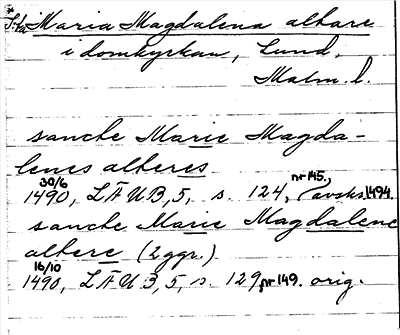 *S:ta Maria Magdalena altare
i domkyrkan, Lund,
Malm. l.
sancte Marie Magda-
lenes alteres
30/6 1490, LÄUB, 5, s. 124, nr 145., avskr. 1494.
sancte Marie Magdalene
altere (2 ggr.)
16/10 1490, LÄUB, 5, s. 129, nr 149. orig.